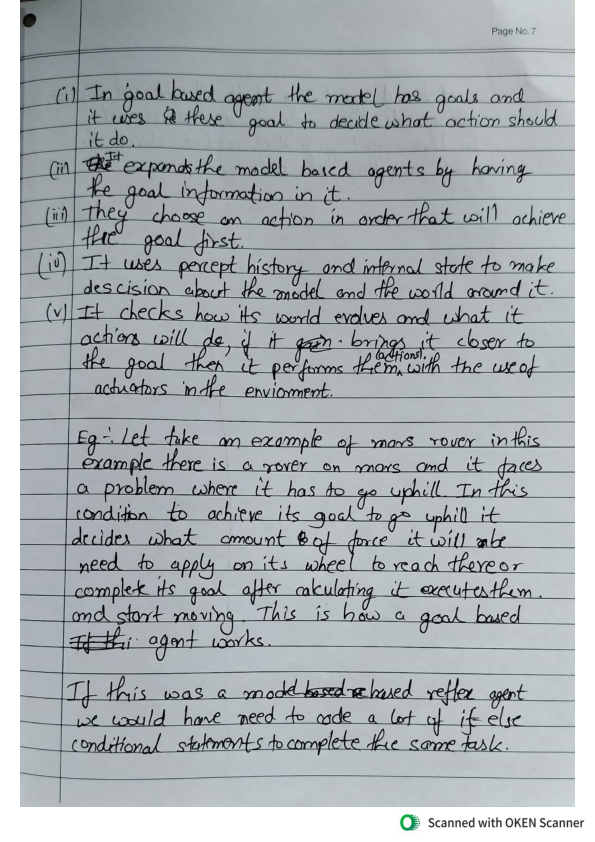 Page No. 7
(i) In goal based agent the model has goals and
it uses these goal to decide what action should
it do.
(ii) It expands the model based agents by having
the goal information in it.
(iii) They choose an action in order that will achieve
the goal first.
(iv) It uses percept history and internal state to make
descision about the model and the world around it.
(v) It checks how its world evolves and what it
actions will do, if it brings it closer to
the goal then it performs them (actions). with the use of
actuators in the enviorment.
Eg -: Let take an example of mars rover in this
example there is a rover on mars and it faces
a problem where it has to go uphill. In this
condition to achieve its goal to go uphill it
decides what amount of force it will be
need to apply on its wheel to reach there or
complete its goal after calculating it executes them.
and start moving. This is how a goal based
agent works.
If this was a model based reflex agent
we would have need to code a lot of if else
conditional statements to complete the same task.
Scanned with OKEN Scanner